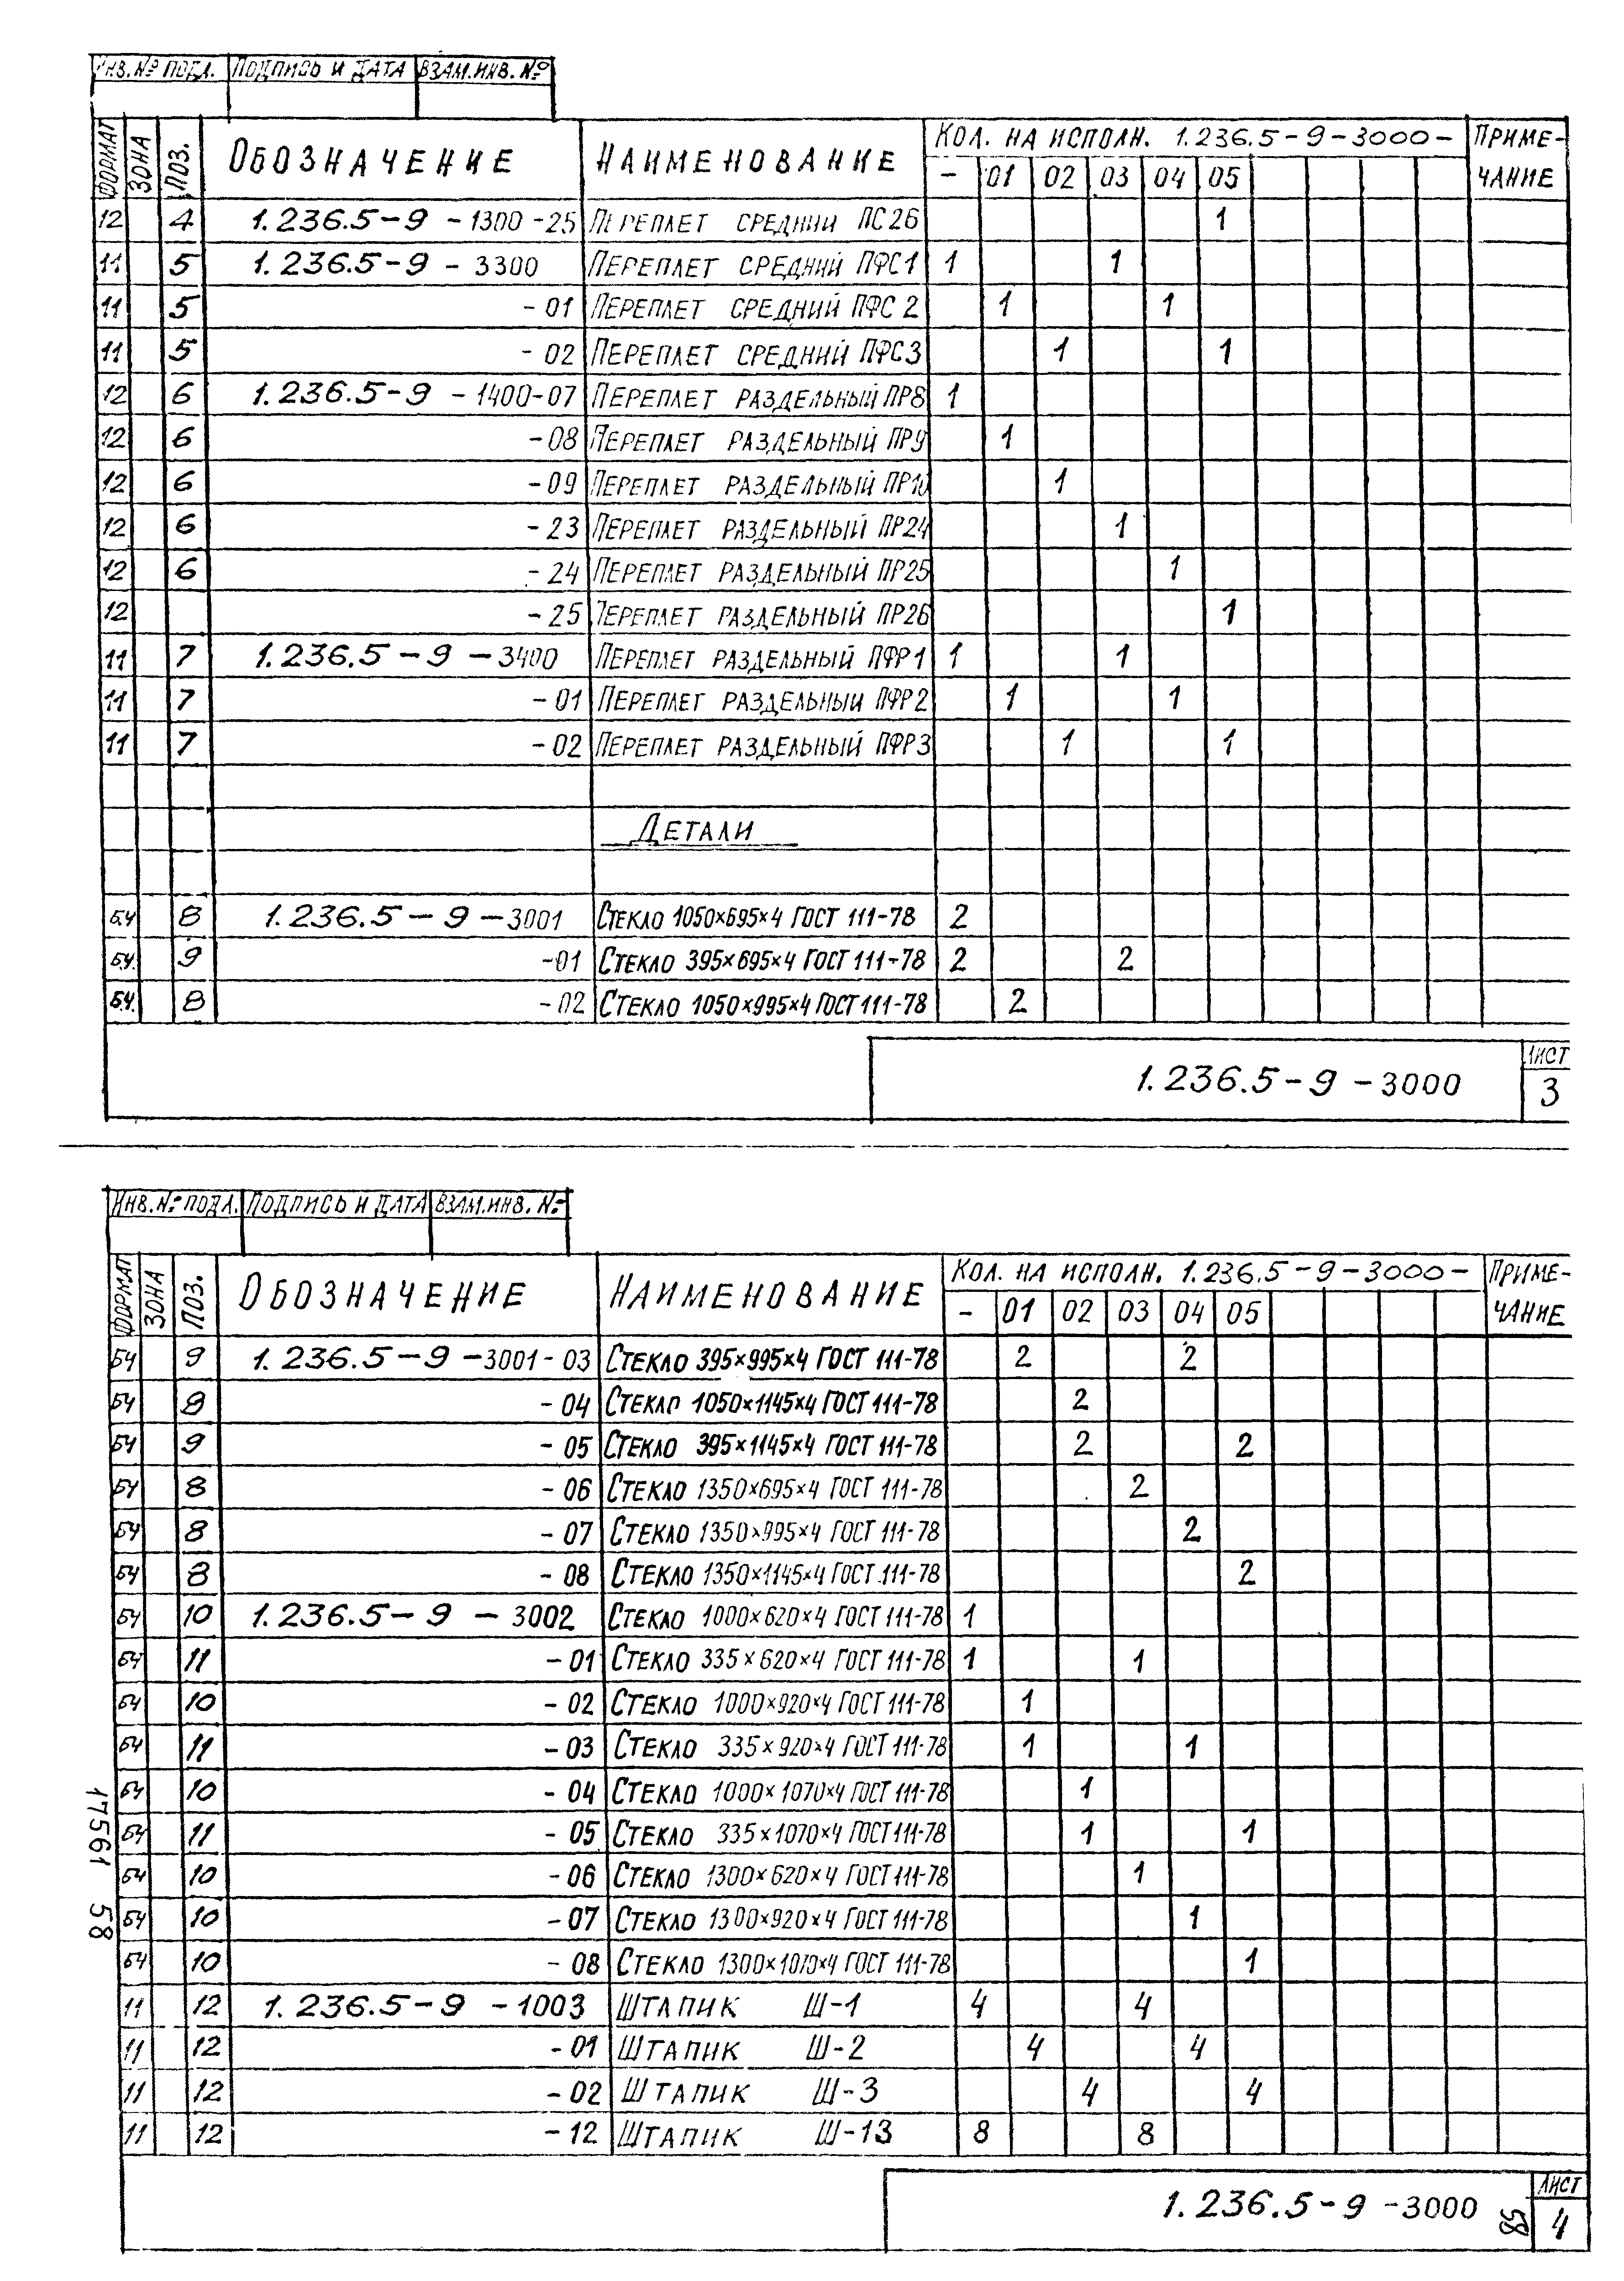 ИНВ. № ПОДЛ. ПОДПИСЬ И ДАТА ВЗАМ.ИНВ. №
ФОРМАТ ЗОНА ПОЗ. ОБОЗНАЧЕНИЕ НАИМЕНОВАНИЕ КОЛ. НА ИСПОЛН. 1.236.5-9-3000- ПРИМЕ-
- 01 02 03 04 05 ЧАНИЕ
12 4 1.236.5-9 - 1300 -25 ПЕРЕПЛЕТ СРЕДНИЙ ПС26 1
11 5 1.236.5-9 - 3300 ПЕРЕПЛЕТ СРЕДНИЙ ПФС1 1 1
11 5 - 01 ПЕРЕПЛЕТ СРЕДНИЙ ПФС 2 1 1
11 5 - 02 ПЕРЕПЛЕТ СРЕДНИЙ ПФС3 1 1
12 6 1.236.5-9 - 1400-07 ПЕРЕПЛЕТ РАЗДЕЛЬНЫЙ ПР8 1
12 6 -08 ПЕРЕПЛЕТ РАЗДЕЛЬНЫЙ ПР9 1
12 6 -09 ПЕРЕПЛЕТ РАЗДЕЛЬНЫЙ ПР10 1
12 6 - 23 ПЕРЕПЛЕТ РАЗДЕЛЬНЫЙ ПР24 1
12 6 - 24 ПЕРЕПЛЕТ РАЗДЕЛЬНЫЙ ПР25 1
12 - 25 ПЕРЕПЛЕТ РАЗДЕЛЬНЫЙ ПР26 1
11 7 1.236.5-9-3400 ПЕРЕПЛЕТ РАЗДЕЛЬНЫЙ ПФР1 1 1
11 7 - 01 ПЕРЕПЛЕТ РАЗДЕЛЬНЫЙ ПФР2 1 1
11 7 - 02 ПЕРЕПЛЕТ РАЗДЕЛЬНЫЙ ПФР3 1 1
ДЕТАЛИ
БЧ 8 1.236.5-9-3001 СТЕКЛО 1050×695×4 ГОСТ 111-78 2
БЧ. 9 -01 СТЕКЛО 395×695×4 ГОСТ 111-78 2 2
БЧ. 8 - 02 СТЕКЛО 1050×995×4 ГОСТ 111-78 2
1.236.5-9-3000 ЛИСТ
3
ИНВ. № ПОДЛ. ПОДПИСЬ И ДАТА ВЗАМ.ИНВ. №
ФОРМАТ ЗОНА ПОЗ. ОБОЗНАЧЕНИЕ НАИМЕНОВАНИЕ КОЛ. НА ИСПОЛН. 1.236.5-9-3000- ПРИМЕ-
- 01 02 03 04 05 ЧАНИЕ
БЧ 9 1.236.5-9-3001- 03 СТЕКЛО 395×995×4 ГОСТ 111-78 2 2
БЧ 9 - 04 СТЕКЛО 1050×1145×4 ГОСТ 111-78 2
БЧ 9 - 05 СТЕКЛО 395×1145×4 ГОСТ 111-78 2 2
БЧ 8 - 06 СТЕКЛО 1350×695×4 ГОСТ 111-78 2
БЧ 8 - 07 СТЕКЛО 1350×995×4 ГОСТ 111-78 2
БЧ 8 - 08 СТЕКЛО 1350×1145×4 ГОСТ 111-78 2
БЧ 10 1.236.5-9 - 3002 СТЕКЛО 1000×620×4 ГОСТ 111-78 1
БЧ 11 - 01 СТЕКЛО 335×620×4 ГОСТ 111-78 1 1
БЧ 10 - 02 СТЕКЛО 1000×920×4 ГОСТ 111-78 1
БЧ 11 - 03 СТЕКЛО 335×920×4 ГОСТ 111-78 1 1
БЧ 10 - 04 СТЕКЛО 1000×1070×4 ГОСТ 111-78 1
БЧ 11 - 05 СТЕКЛО 335×1070×4 ГОСТ 111-78 1 1
БЧ 10 - 06 СТЕКЛО 1300×620×4 ГОСТ 111-78 1
БЧ 10 -07 СТЕКЛО 1300×920×4 ГОСТ 111-78 1
БЧ 10 - 08 СТЕКЛО 1300×1070×4 ГОСТ 111-78 1
11 12 1.236.5-9 -1003 ШТАПИК Ш-1 4 4
11 12 - 01 ШТАПИК Ш-2 4 4
11 12 - 02 ШТАПИК Ш-3 4 4
11 12 - 12 ШТАПИК Ш-13 8 8
17561 58
1.236.5-9-3000 58 ЛИСТ
4